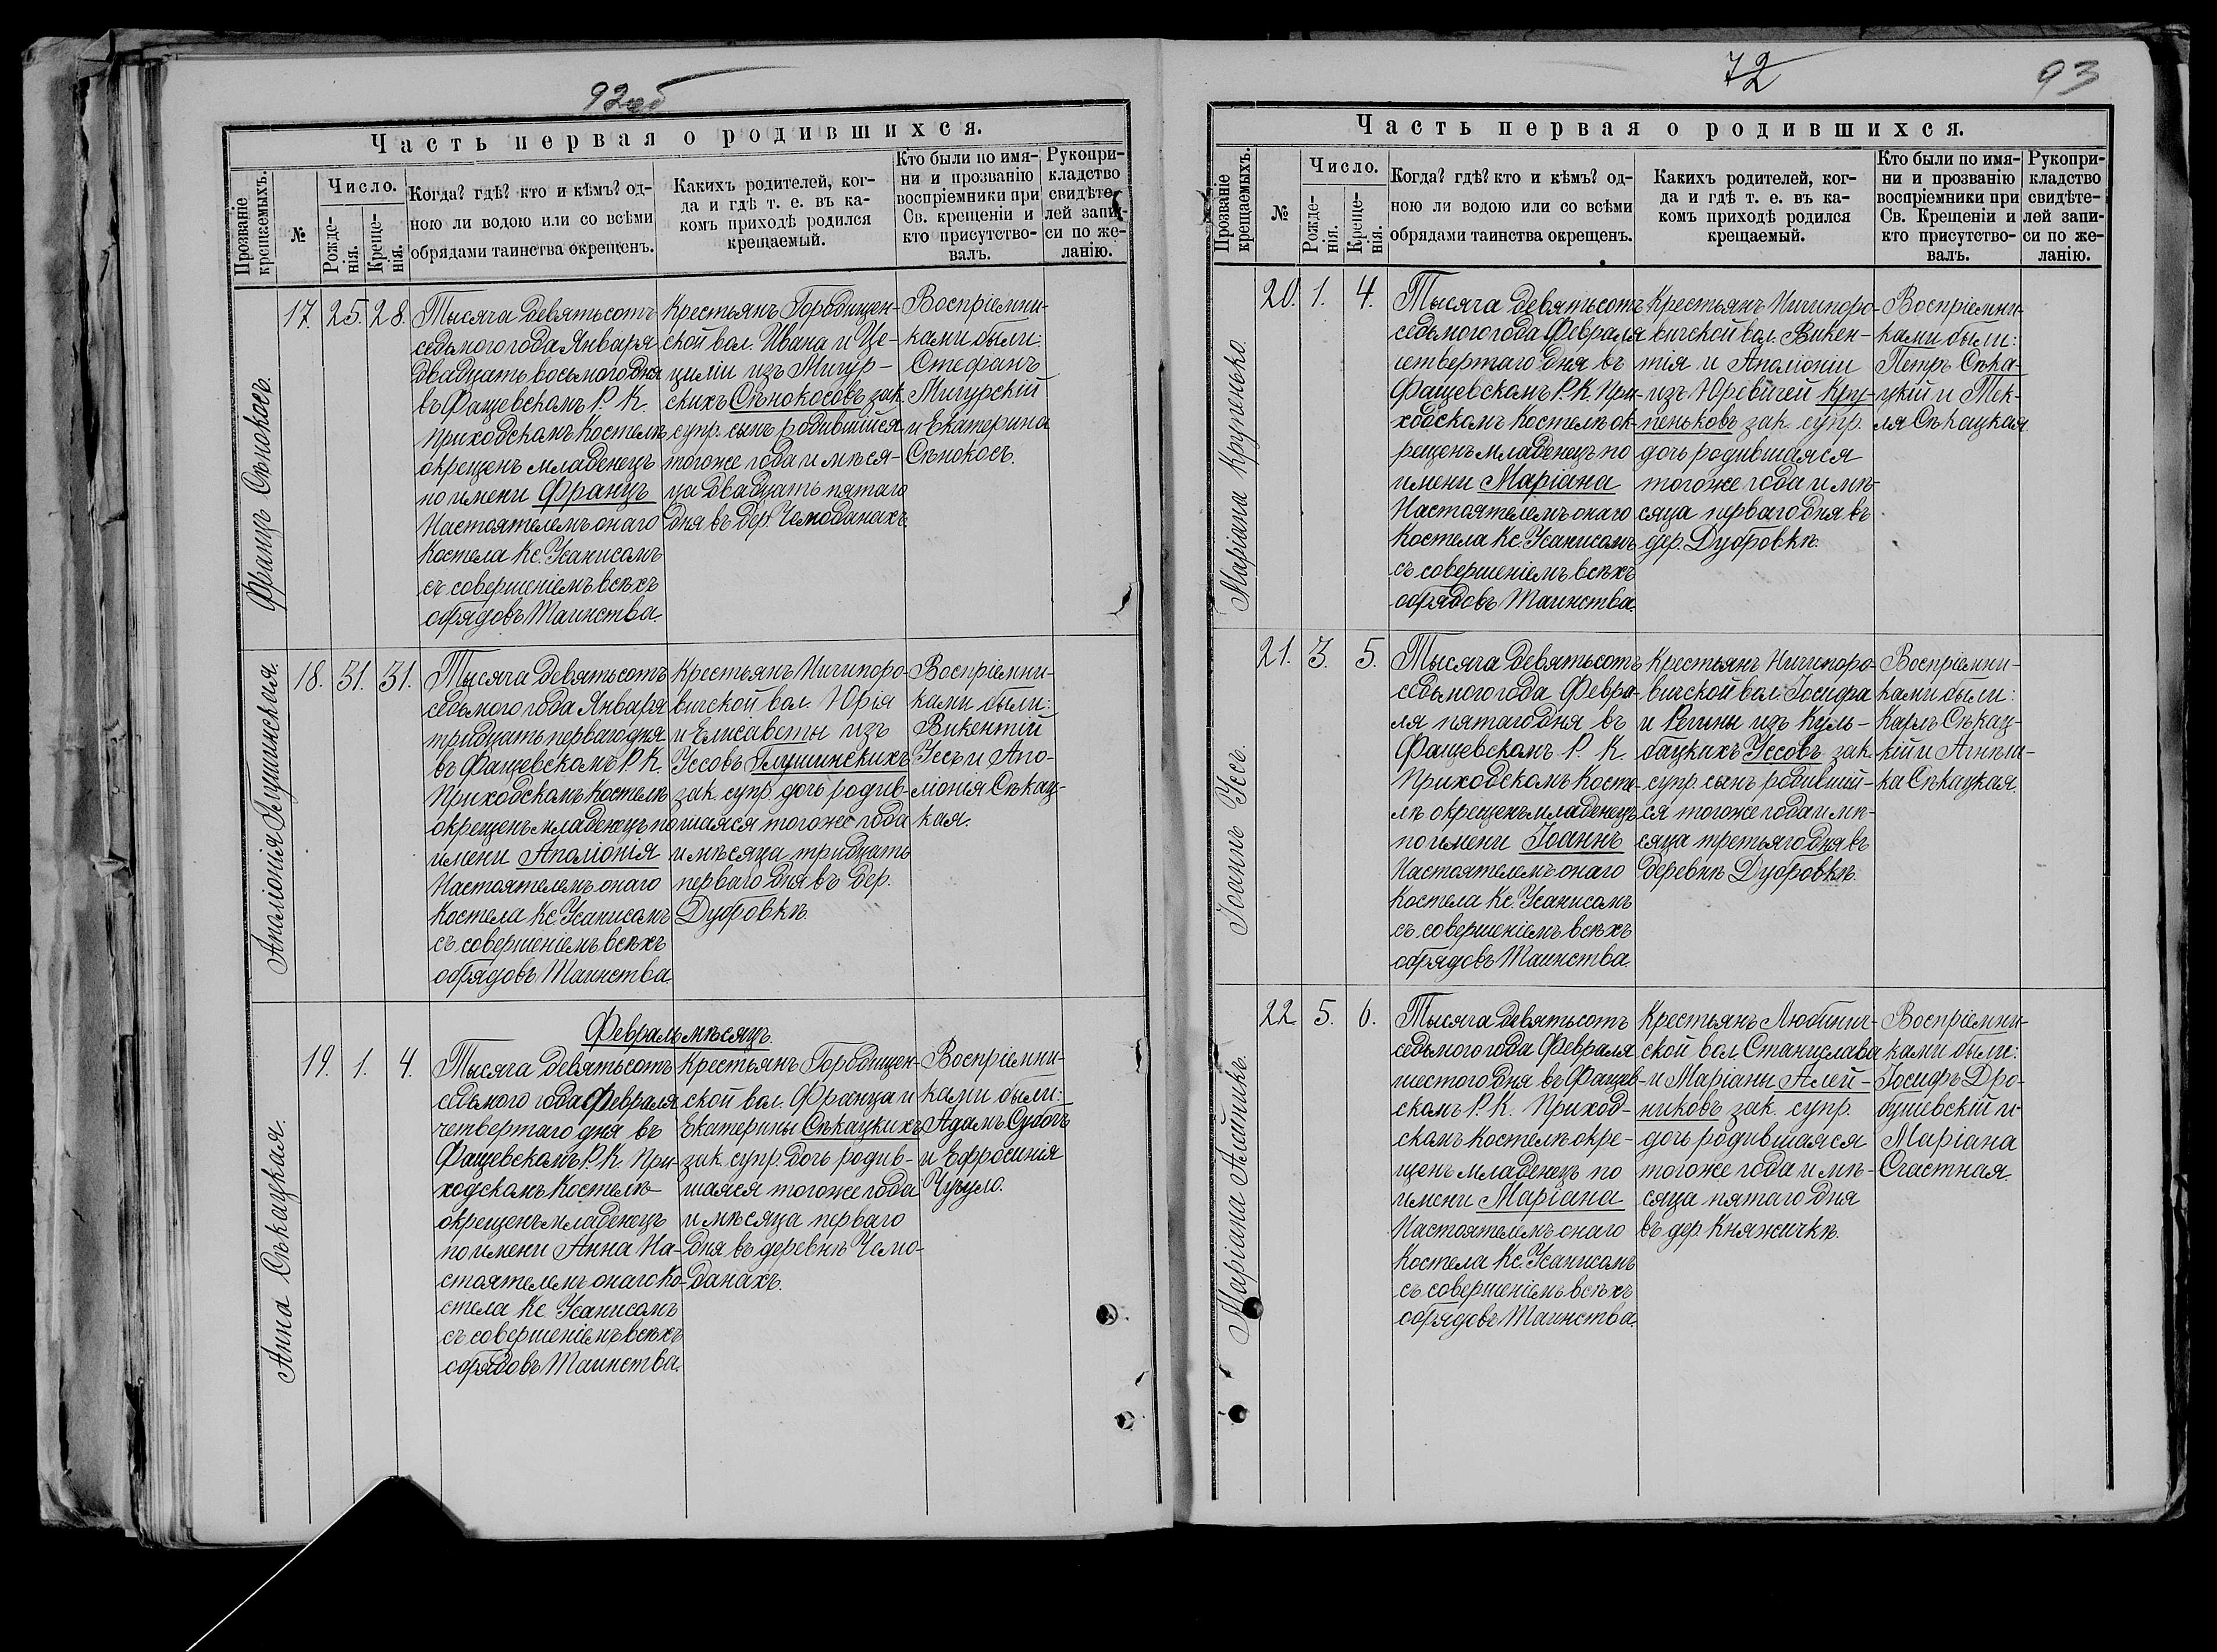 92об
Часть первая о родившихся.
Прозваніе крещаемыхъ.
№
Число.
Рожде-
нія.
Креще-
нія.
Когда? гдѣ? кто и кѣмъ? од-
ною ли водою или со всѣми
обрядами таинства окрещенъ.
Какихъ родителей, ког-
да и гдѣ т. е. въ ка-
комъ приходѣ родился
крещаемый.
Кто были по имя-
ни и прозванію
воспріемники при
Св. крещеніи и
кто присутство-
валъ.
Рукопри-
кладство
свидѣте-
лей запи-
си по же-
ланію.
Францъ Сѣнокосъ.
17. 25. 28.
Тысяча девятьсотъ
седьмого года Января
двадцать восьмого дня
въ Фащевскомъ Р. К.
приходскомъ Костелѣ
окрещенъ младенецъ
по имени Францъ
Настоятелемъ онаго
Костела Кс. Усанисомъ
съ совершеніемъ всѣхъ
обрядовъ Таинства.
Крестьянъ Городищен-
ской вол. Ивана и Це-
циліи изъ Мигур-
скихъ Сѣнокосовъ зак.
супр. сынъ родившійся
тогоже года и мѣся-
ца двадцать пятаго
дня въ дер. Чемоданахъ
Воспріемни-
ками были:
Стефанъ
Мигурскій
и Екатерина
Сѣнокосъ.
Аполіонія Глушинская.
18. 31. 31.
Тысяча девятьсотъ
седьмого года Января
тридцать перваго дня
въ Фащевскомъ Р. К.
Приходскомъ Костелѣ
окрещенъ младенецъ по
имени Аполіонія
Настоятелемъ онаго
Костела Кс. Усанисомъ
съ совершеніемъ всѣхъ
обрядовъ Таинства.
Крестьянъ Ничипоро-
вичской вол. Юрія
и Елисаветы изъ
Уссовъ Глушинскихъ
зак. супр. дочь родив-
шаяся тогоже года
и мѣсяца тридцать
перваго дня въ дер.
Дубровкѣ.
Воспріемни-
ками были:
Викентій
Уссъ и Апо-
ліонія Сѣкац-
кая.
Февраль мѣсяцъ.
Анна Сѣкацкая.
19. 1. 4.
Тысяча девятьсотъ
седьмого года Февраля
четвертаго дня въ
Фащевскомъ Р. К. При-
ходскомъ Костелѣ
окрещенъ младенецъ
по имени Анна На-
стоятелемъ онаго Ко-
стела Кс. Усанисомъ
съ совершеніемъ всѣхъ
обрядовъ Таинства.
Крестьянъ Городищен-
ской вол. Франца и
Екатерины Сѣкацкихъ
зак. супр. дочь родив-
шаяся тогоже года
и мѣсяца перваго
дня въ деревнѣ Чемо-
данахъ.
Воспріемни-
ками были:
Адамъ Суботь
и Ефросинія
72
93
Часть первая о родившихся.
Прозваніе крещаемыхъ.
№
Число.
Рожде-
нія.
Креще-
нія.
Когда? гдѣ? кто и кѣмъ? од-
ною ли водою или со всѣми
обрядами таинства окрещенъ.
Какихъ родителей, ког-
да и гдѣ т. е. въ ка-
комъ приходѣ родился
крещаемый.
Кто были по имя-
ни и прозванію
воспріемники при
Св. Крещеніи и
кто присутство-
валъ.
Рукопри-
кладство
свидѣте-
лей запи-
си по же-
ланію.
Маріана Крупенько.
20. 1. 4.
Тысяча девятьсотъ
седьмого года Февраля
четвертаго дня въ
Фащевскомъ Р. К. При-
ходскомъ Костелѣ ок-
рещенъ младенецъ по
имени Маріана
Настоятелемъ онаго
Костела Кс. Усанисомъ
съ совершеніемъ всѣхъ
обрядовъ Таинства.
Крестьянъ Ничипоро-
вичской вол. Викен-
тія и Аполіоніи
изъ Юревичей Кру-
пеньковъ зак. супр.
дочь родившаяся
тогоже года и мѣ-
сяца перваго дня въ
дер. Дубровкѣ.
Воспріемни-
ками были:
Петръ Сѣка-
цкій и Тек-
ля Сѣкацкая.
Іоаннъ Уссъ.
21. 3. 5.
Тысяча девятьсотъ
седьмого года Февра-
ля пятаго дня въ
Фащевскомъ Р. К.
Приходскомъ Косте-
лѣ окрещенъ младенецъ
по имени Іоаннъ
Настоятелемъ онаго
Костела Кс. Усанисомъ
съ совершеніемъ всѣхъ
обрядовъ Таинства.
Крестьянъ Ничипоро-
вичской вол. Іосифа
и Регины изъ Куль-
бацкихъ Уссовъ зак.
супр. сынъ родивший-
ся тогоже года и мѣ-
сяца третьяго дня въ
деревнѣ Дубровкѣ.
Воспріемни-
ками были:
Карлъ Сѣкац-
кій и Агнѣш-
ка Сѣкацкая.
Маріана Алейникъ.
22. 5. 6.
Тысяча девятьсотъ
седьмого года Февраля
шестого дня въ Фащев-
скомъ Р. К. Приход-
скомъ Костелѣ окре-
щенъ младенецъ по
имени Маріана
Настоятелемъ онаго
Костела Кс. Усанисомъ
съ совершеніемъ всѣхъ
обрядовъ Таинства.
Крестьянъ Любинич-
ской вол. Станислава
и Маріаны Алей-
никовъ зак. супр.
дочь родившаяся
тогоже года и мѣ-
сяца пятаго дня
въ дер. Княжичкѣ.
Воспріемни-
ками были:
Іосифъ Дро-
бушевскій и
Маріана
Счастная.